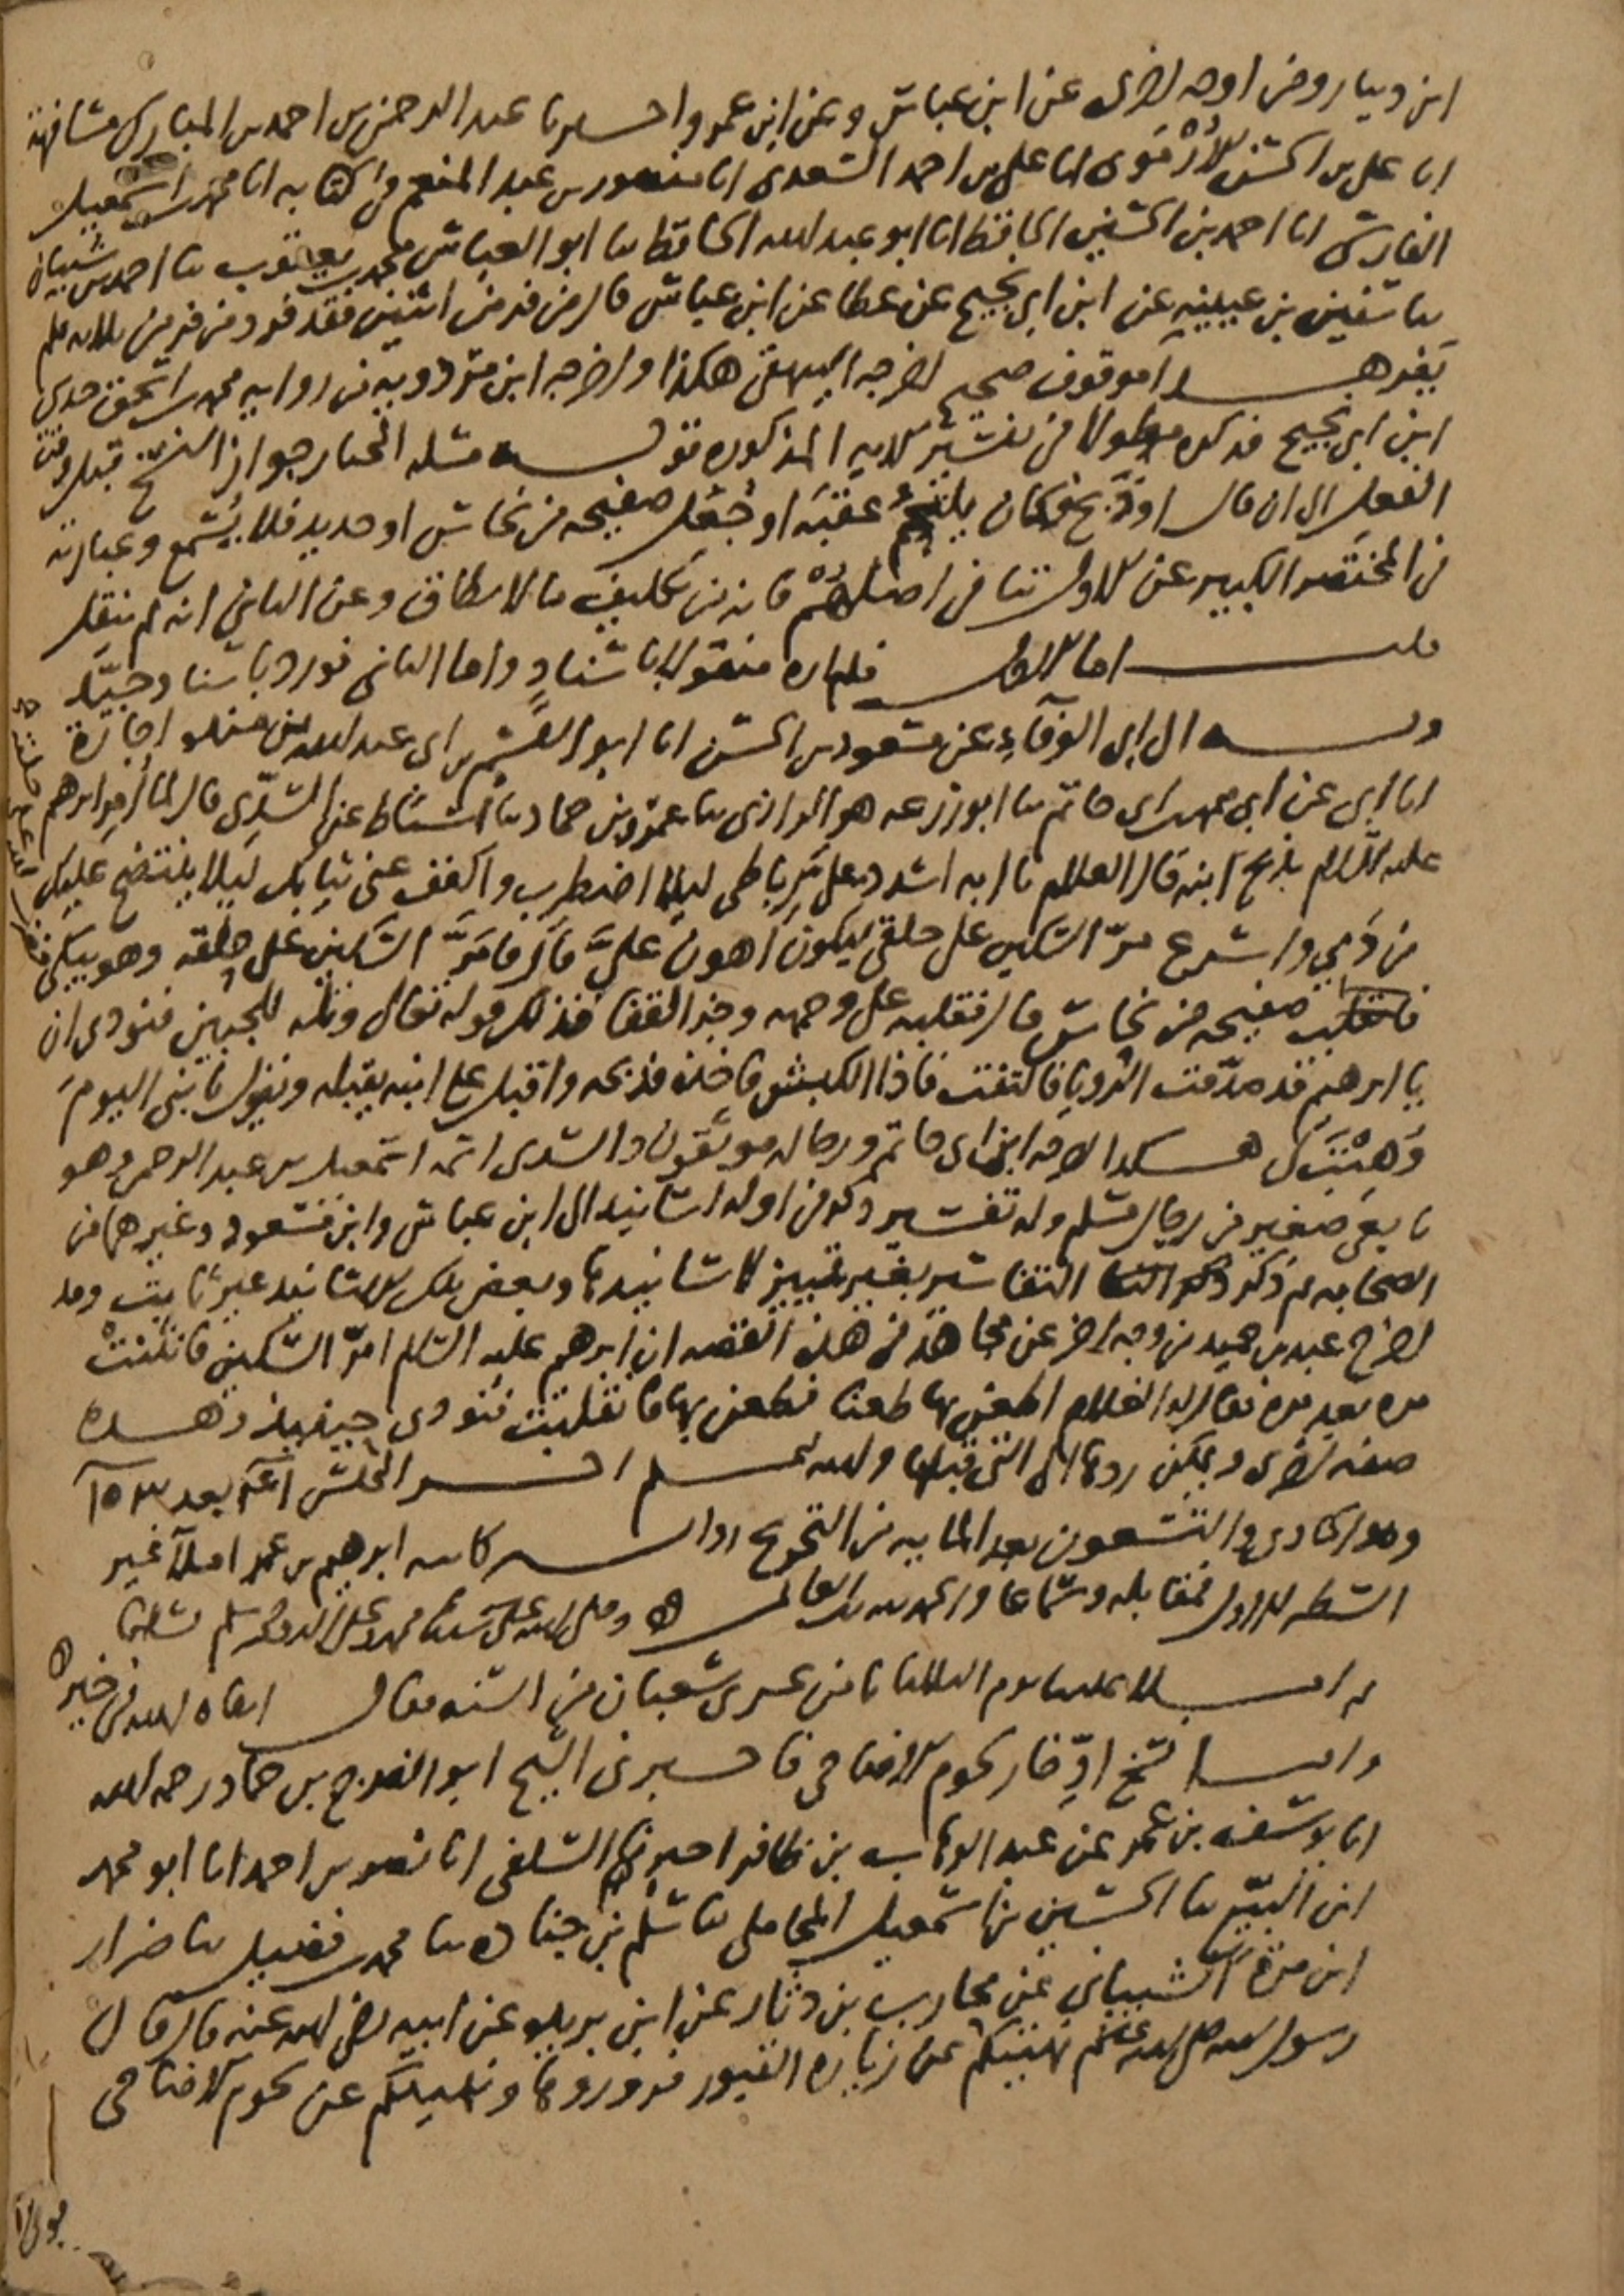 ابن دينار ومن اوجه اخرى عن ابن عباس وعن ابن عمر واخبرنا عبد الرحمن بن احمد بن المبارك مشافهة
انا على بن الحسن الأرموى انا على بن احمد السعدى انا منصور بن عبد المنعم فى كتابه انا محمد بن اسمعيل
الفارسى انا احمد بن الحسين الحافظ انا ابو عبد الله الحافظ نا ابو العباس محمد بن يعقوب نا احمد بن شيبان
نا سفين بن عيينه عن ابن ابى نجيح عن عطا عن ابن عباس قال من فر من اثنين فقد فر ومن فر من ثلاثه فلم
يفر هذا موقوف صحيح اخرجه البيهقى هكذا واخرجه ابن مردويه من روايه محمد بن اسحق حدثنى
ابن ابى نجيح فذكره مطولا فى تفسير الايه المذكوره قوله مسله المختار جواز النسخ قبل وقت
الفعل الى ان قال او ذبح فكان يلتحم عقبه او جعل صفيحه من نحاس او حديد فلا يسمع وعبارته
فى المختصر الكبير عن الاول تنافى اصلهم فانه من تكليف ما لا يطاق وعن الثانى انه لم ينقل
قلت اما الاول فلم اره منقولا باسناد واما الثانى فورد باسنا وجيد
وبه الى ابى الوفاء عن مسعود بن الحسن انا ابو القسم بن ابى عبد الله بن منده اجازة
انا ابى عن ابى محمد بن ابى حاتم نا ابو زرعه هو الرازى نا عمرو بن حماد نا اسباط عن السدى قال لما امر ابرهيم
عليه السلام بذبح ابنه قال الغلام يا ابه اشدد على رباطى ليلا اضطرب واكفف عنى ثيابك ليلا ينتضح عليك
من دمي واسرع مر السكين على حلقى ليكون اهون علىّ قال فامرّ السكين على حلقه وهو يبكى
فانقلبت صفيحه من نحاس قال فقلبه على وجهه وحز القفا فذلك قوله تعالى وتله للجبين فنودى ان
يا ابرهيم قد صدقت الرويا فالتفت فاذا الكبش فاخذه فذبحه واقبل على ابنه يقبله ويقول يا بنى اليوم
وهبت لى هكذا اخرجه ابن ابى حاتم ورجاله موثقون والسدى اسمه اسمعيل بن عبد الرحمن وهو
تابعى صغير من رجال مسلم وله تفسير ذكر فى اوله اسانيد الى ابن عباس وابن مسعود وغيرهما من
الصحابه ثم ذكر التفاسير بغير تمييز لاسانيدها وبعض تلك الاسانيد غير ثابت وقد
اخرج عبد بن حميد من وجه اخر عن مجاهد فى هذه القصه ان ابرهيم عليه السلام امرّ السكين فانثنت
مره بعد مره فقال له الغلام اطعن بها طعنا فطعن بها فانقلبت فنودى حينيذ وهذه
صفه اخرى ويمكن ردها الى التى قبلها والله اعلم اخر المجلس بعد
وهو الحادى والتسعون بعد المايه من التخريج ابرهيم بن عمر املاء غير
السطر الاول فمقابله وسماعا والحمد لله رب العالمين وصلى الله على سيدنا محمد وعلى اله وصحبه وسلم تسليما
ثم املا علينا يوم الثلاثا ثامن عشرى شعبان من السنه فقال ابقاه الله فى خير
واما نسخ ادخار لحوم الاضاحى فاخبرنى الشيخ ابو الفرج بن حماد رحمه الله
انا يوسف بن عمر عن عبد الوهاب بن ظافر اخبرهم السلفى انا نصر بن احمد انا ابو محمد
ابن البيع نا الحسين بن اسمعيل المحاملى نا سلم بن جناده نا محمد بن فضيل نا ضرار
ابن مرة الشيبانى عن محارب بن دثار عن ابن بريده عن ابيه رضى الله عنه قال قال
رسول الله صلى الله عليه وسلم نهيتكم عن زيارة القبور فزوروها ونهيتكم عن لحوم الاضاحى